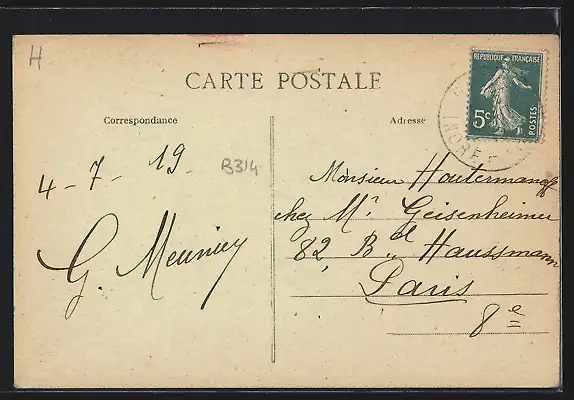 H
CARTE POSTALE
Correspondance
Adresse
RÉPUBLIQUE FRANÇAISE
5c
POSTES
INDRE
4-7-19
B314
G. Meunier
Monsieur Houtermans
chez Mr. Geisenheimer
82 Bd. Haussmann
Paris
8e